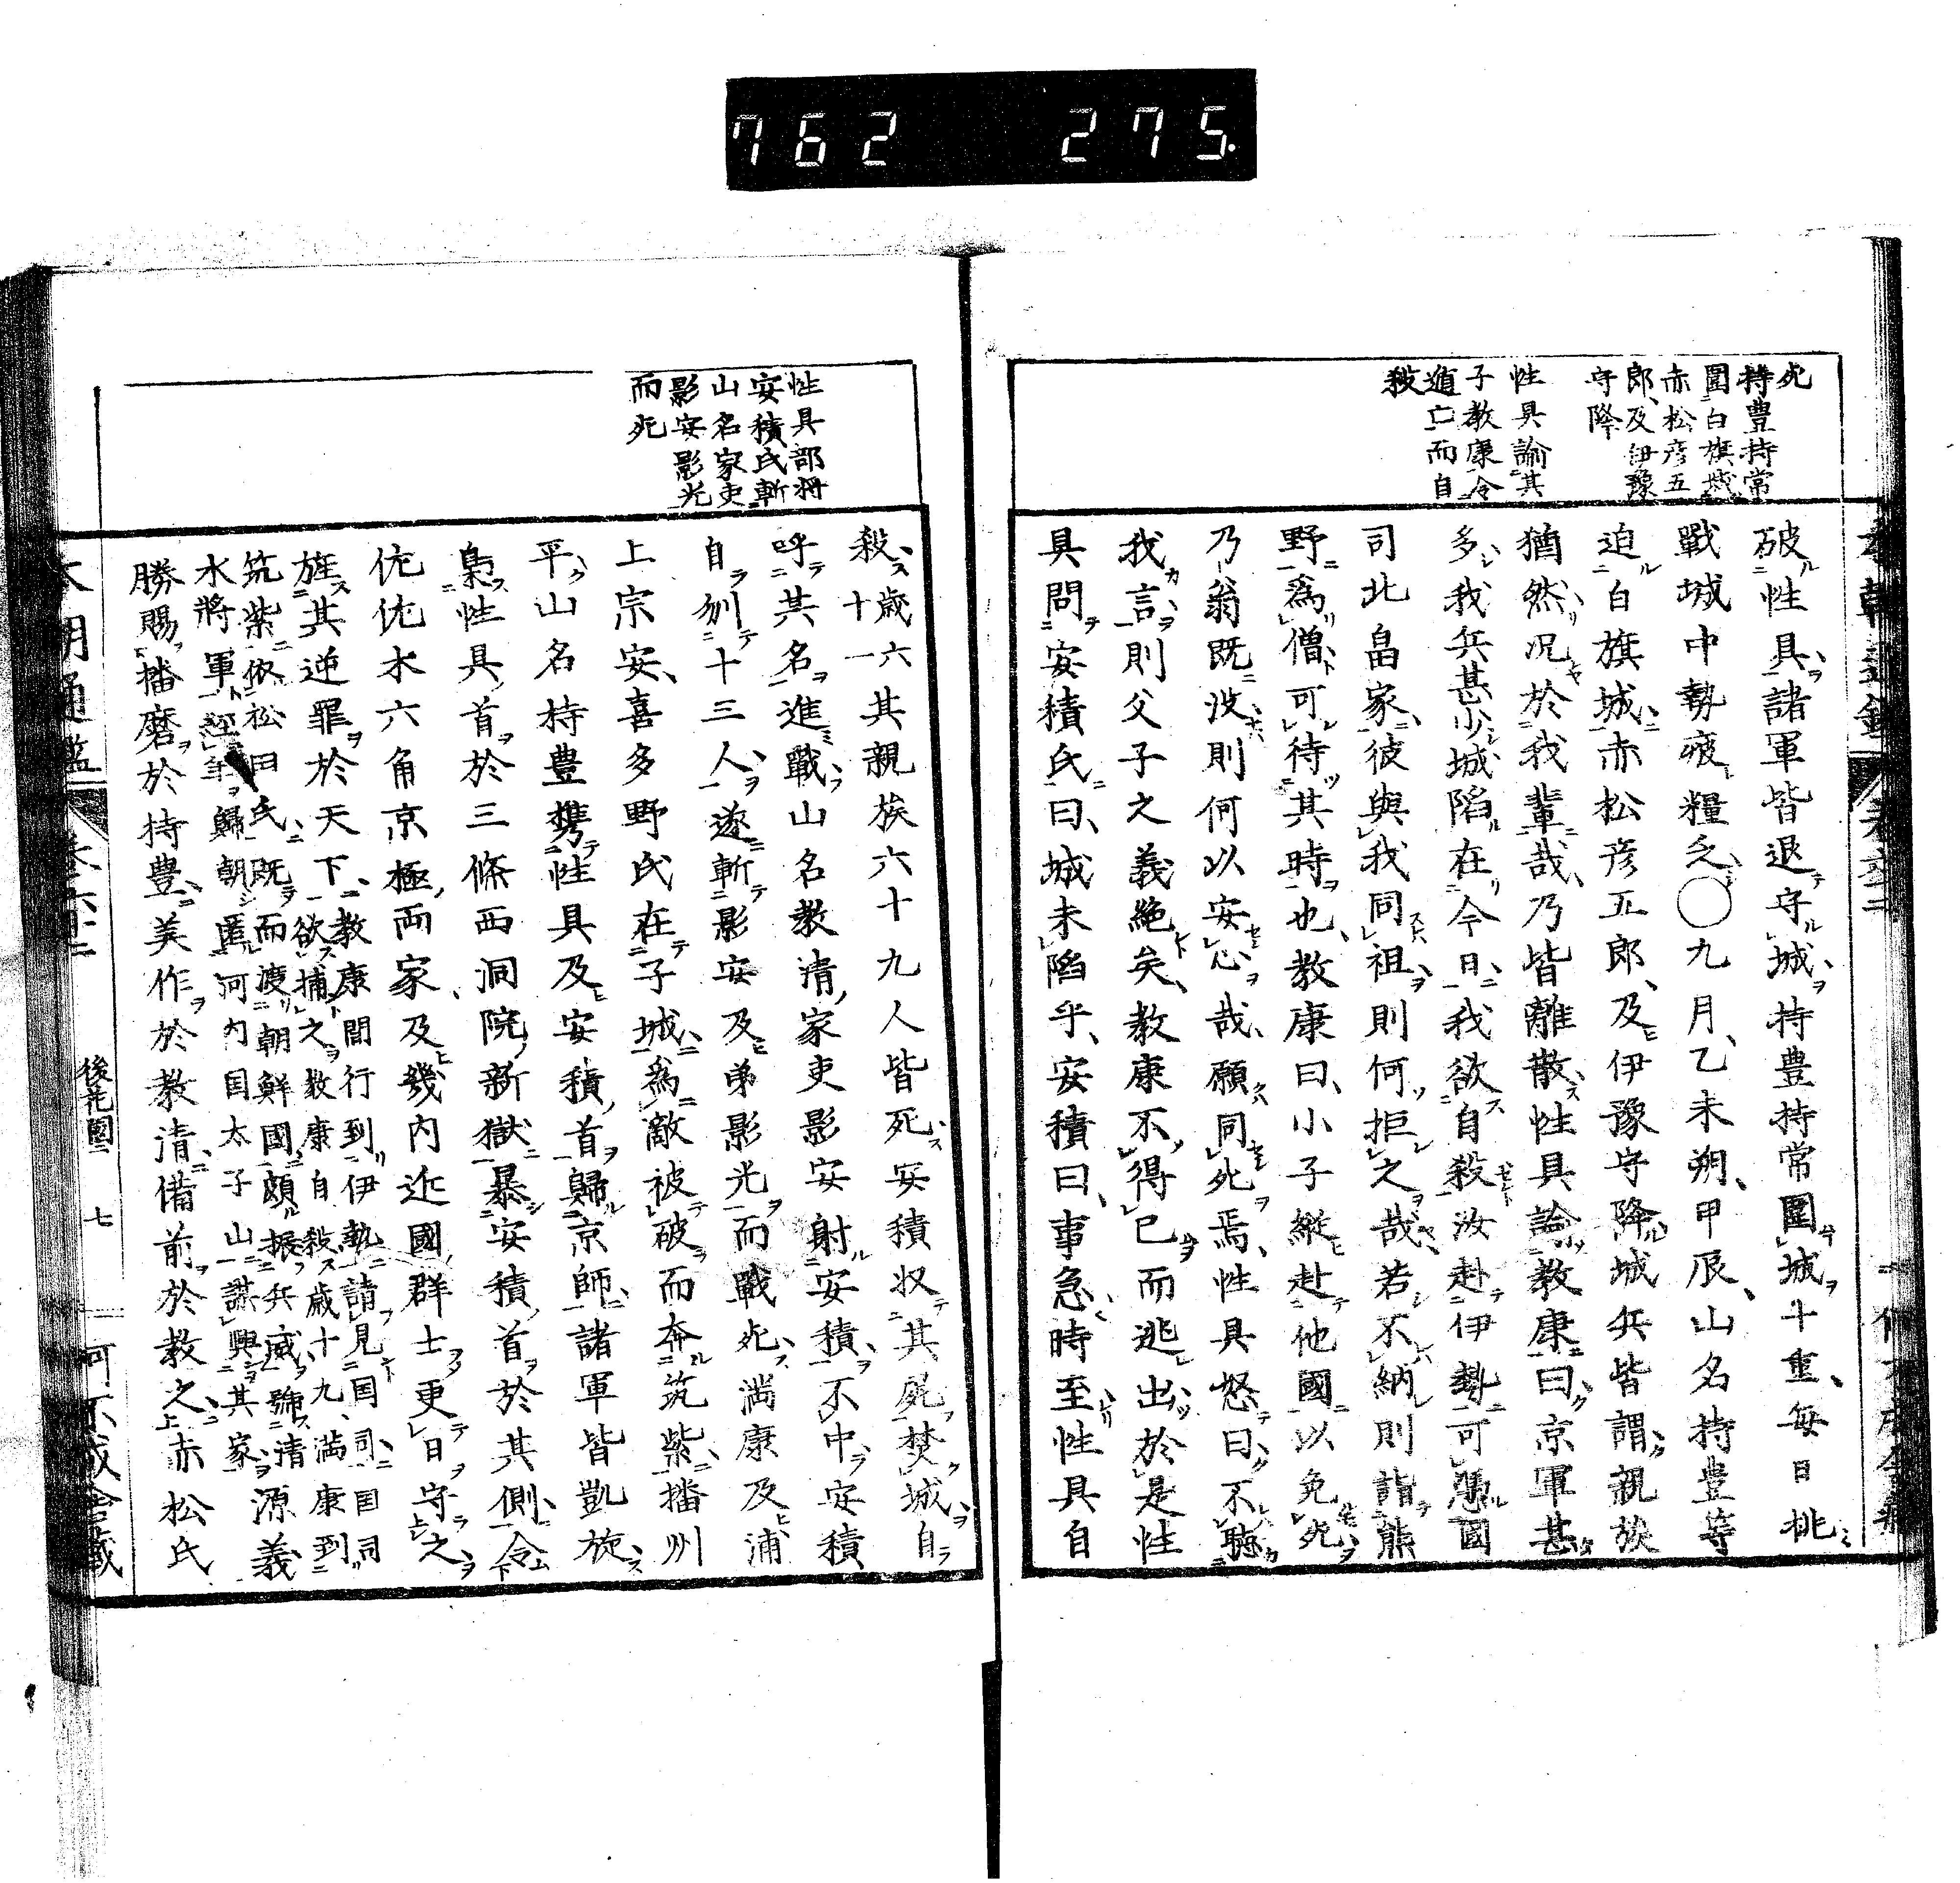 762 275.
死
持豊持常
圍白旗城
赤松彦五
郎及伊豫
守降
性具諭其
子教康令
遁亡而自
殺
破性具諸軍皆退守城持豊持常圍城十重毎日挑
戰城中勢疲糧乏〇九月乙未朔甲辰山名持豊等
迫白旗城赤松彦五郎及伊豫守降城兵皆謂親族
猶然况於我輩哉乃皆離散性具諭教康曰京軍甚
多我兵甚少城陷在今日我欲自殺汝赴伊勢可憑國
司北畠家彼與我同祖則何拒之哉若不納則詣熊
野爲僧可待其時也教康曰小子縱赴他國以免死
乃翁既没則何以安心哉願同死焉性具怒曰不聽
我言則父子之義絶矣教康不得已而逃出於是性
具問安積氏曰城未陷乎安積曰事急時至性具自
性具部將
安積氏斬
山名家吏
影安影光
而死
殺歳六十一其親族六十九人皆死安積収其屍焚城自
呼其名進戰山名教清家吏影安射安積不中安積
自刎十三人遂斬影安及弟影光而戰死満康及浦
上宗安喜多野氏在子城爲敵被破而奔筑紫播州
平山名持豊携性具及安積首歸京師諸軍皆凱旋
梟性具首於三條西洞院新獄暴安積首於其側令
佐佐木六角京極両家及畿内近國群士更日守之
旌其逆罪於天下教康間行到伊勢請見国司国司
欲捕之教康自殺歳十九満康到
筑紫依松田氏既而渡朝鮮國頗振兵威號清
水將軍經年歸朝匿河内国太子山謀興其家源義
勝賜播磨於持豊美作於教清備前於教之赤松氏
後花園二 七